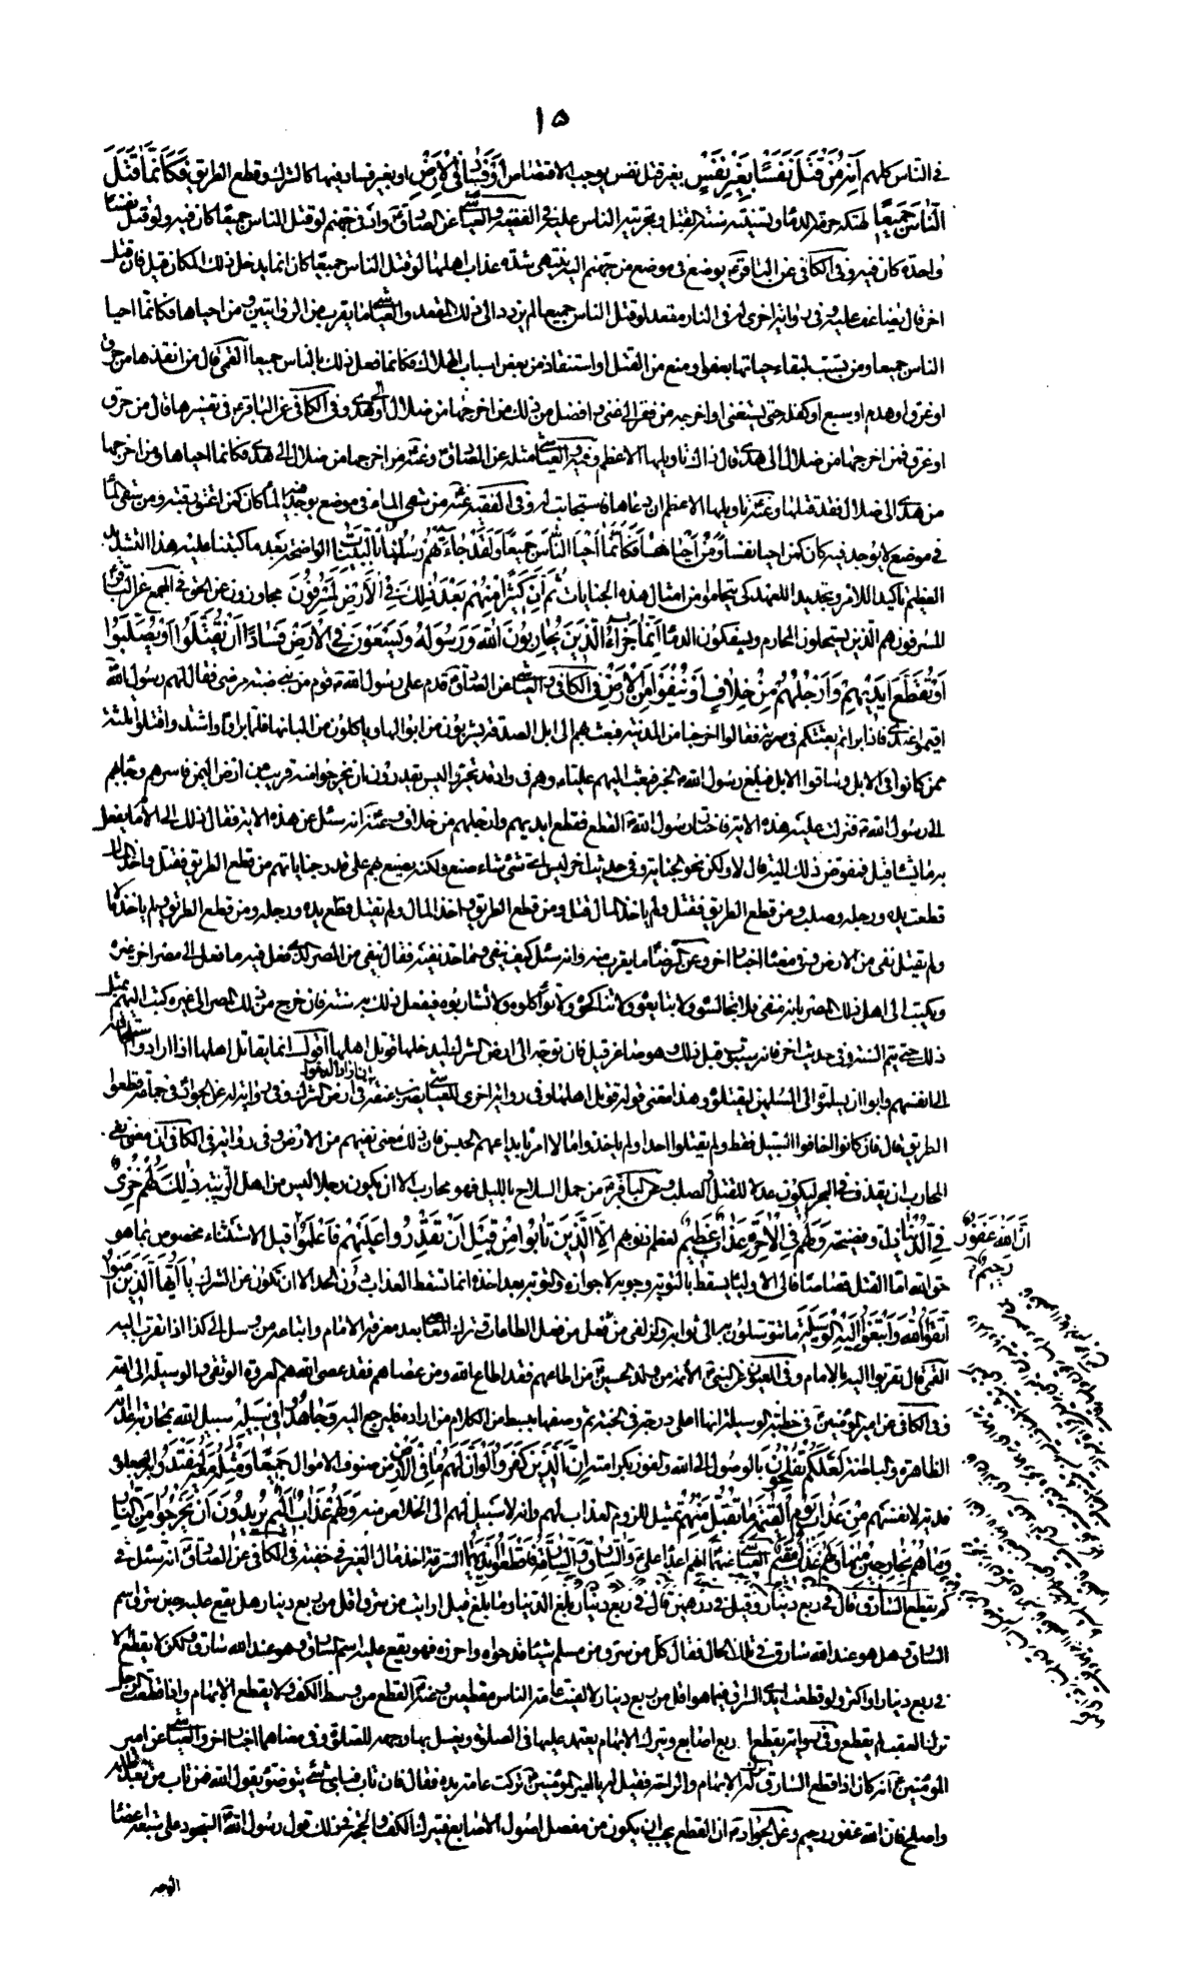 ١٥
في الناس كلهم أَنَّهُ مَنْ قَتَلَ نَفْسًا بِغَيْرِ نَفْسٍ بغير قتل نفس يوجب الاقتصاص أَوْ فَسَادٍ فِي الْأَرْضِ او بغير فساد فيها كالشرك وقطع الطريق فَكَأَنَّمَا قَتَلَ
النَّاسَ جَمِيعًا لهتكه حرمة الدماء وتسنينه سنة القتل وتجرئته الناس عليه في الفقيه والعياشي عن الصادق واد في جهنم لو قتل الناس جميعا كان فيه ولو قتل نفسا
واحدة كان فيه وفي الكافي عن الباقر يوضع في موضع من جهنم اليه ينتهي شدة عذاب اهلها لو قتل الناس جميعا كان انما يدخل ذلك المكان قيل فان قتل
اخر قال يضاعف عليه وفي رواية اخرى له في النار مقعد لو قتل الناس جميعا لم يزدد الى ذلك المقعد والعياشي ما يقرب من الروايتين ومن احياها فكانما احيا
الناس جميعا ومن تسبب لبقاء حياتها بعفو او منع من القتل او استنقاذ من بعض اسباب الهلاك فكانما فعل ذلك بالناس جميعا القمي قال من انقذها من حرق
او غرق او هدم او سبع او كفله حتى يستغني او اخرجه من فقر الى غنى وافضل من ذلك من اخرجها من ضلال الى هدى وفي الكافي عن الباقر في تفسيرها قال من حرق
او غرق قيل فمن اخرجها من ضلال الى هدى قال ذاك تاويلها الاعظم وفيه والعياشي مثله عن الصادق وعنه من اخرجها من ضلال الى هدى فكانما احياها ومن اخرجها
من هدى الى ضلال فقد قتلها وعنه تاويلها الاعظم ان دعاها فاستجابت له وفي الفقيه عنه من سقى الماء في موضع يوجد فيه الماء كان كمن اعتق رقبة ومن سقى الماء
في موضع لا يوجد فيه كان كمن احيا نفسا وَمَنْ أَحْيَاهَا فَكَأَنَّمَا أَحْيَا النَّاسَ جَمِيعًا وَلَقَدْ جَاءَتْهُمْ رُسُلُنَا بِالْبَيِّنَاتِ الواضحة بعد ما كتبنا عليهم هذا التشديد
العظيم تاكيدا للامر وتجديدا للعهد كي يتحاموا من امثال هذه الجنايات ثُمَّ إِنَّ كَثِيرًا مِنْهُمْ بَعْدَ ذَلِكَ فِي الْأَرْضِ لَمُسْرِفُونَ مجاوزون عن الحق في المجمع عن الباقر
المسرفون هم الذين يستحلون المحارم ويسفكون الدماء إِنَّمَا جَزَاءُ الَّذِينَ يُحَارِبُونَ اللَّهَ وَرَسُولَهُ وَيَسْعَوْنَ فِي الْأَرْضِ فَسَادًا أَنْ يُقَتَّلُوا أَوْ يُصَلَّبُوا
أَوْ تُقَطَّعَ أَيْدِيهِمْ وَأَرْجُلُهُمْ مِنْ خِلَافٍ أَوْ يُنْفَوْا مِنَ الْأَرْضِ في الكافي والعياشي عن الصادق قدم على رسول الله قوم من بني ضبة مرضى فقال لهم رسول الله
اقيموا عندي فاذا برأتم بعثتكم في سرية فقالوا اخرجنا من المدينة فبعث بهم الى ابل الصدقة يشربون من ابوالها وياكلون من البانها فلما برأوا واشتدوا قتلوا ثلثة
ممن كانوا في الابل وساقوا الابل فبلغ رسول الله الخبر فبعث اليهم عليا وهم في واد قد تحيروا ليس يقدرون ان يخرجوا منه قريب من ارض اليمن فاسرهم وجاء بهم
الى رسول الله فنزلت عليه هذه الاية فاختار رسول الله القطع فقطع ايديهم وارجلهم من خلاف وعنه انه سئل عن هذه الاية فقال ذلك الى الامام يفعل
به ما يشاء قيل فمفوض ذلك اليه قال لا ولكن نحو الجناية وفي حديث اخر ليس اي شئ شاء صنع ولكنه يصنع بهم على قدر جناياتهم من قطع الطريق فقتل واخذ المال
قطعت يده ورجله وصلب ومن قطع الطريق فقتل ولم ياخذ المال قتل ومن قطع الطريق واخذ المال ولم يقتل قطع يده ورجله ومن قطع الطريق ولم ياخذ مالا
ولم يقتل نفي من الارض وفي معناه اخبار اخر وعن الرضا ما يقرب منه وانه سئل كيف ينفى وما حد نفيه فقال ينفى من المصر الذي فعل فيه ما فعل الى مصر اخر غيره
ويكتب الى اهل ذلك المصر بانه منفي فلا تجالسوه ولا تبايعوه ولا تناكحوه ولا تؤاكلوه ولا تشاربوه فيفعل ذلك به سنة فان خرج من ذلك المصر الى غيره كتب اليهم بمثل
ذلك حتى تتم السنة وفي حديث اخر فانه سيتوب قبل ذلك وهو صاغر قيل فان توجه الى ارض الشرك ليدخلها قوتل اهلها اقول انما يقاتل اهلها اذا ارادوا استلحاقه
الى انفسهم وابوا ان يسلموه الى المسلمين ليقتلوه وهذا معنى قوله قوتل اهلها وفي رواية اخرى للعياشي يضرب عنقه ان اراد الدخول في ارض الشرك وفي رواية له عن الجواد في جماعة قطعوا
الطريق قال فان كانوا اخافوا السبيل فقط ولم يقتلوا احدا ولم ياخذوا مالا امر بايداعهم الحبس فان ذلك معنى نفيهم من الارض وفي رواية في الكافي ان معنى نفي
المحارب ان يقذف في البحر ليكون عدلا للقتل والصلب وعن الباقر من حمل السلاح بالليل فهو محارب الا ان يكون رجلا ليس من اهل الريبة ذَلِكَ لَهُمْ خِزْيٌ
فِي الدُّنْيَا ذل وفضيحة وَلَهُمْ فِي الْآخِرَةِ عَذَابٌ عَظِيمٌ لعظم ذنوبهم إِلَّا الَّذِينَ تَابُوا مِنْ قَبْلِ أَنْ تَقْدِرُوا عَلَيْهِمْ فَاعْلَمُوا قيل الاستثناء مخصوص بما هو
أَنَّ اللَّهَ غَفُورٌ
رَحِيمٌ
حق الله اما القتل قصاصا فالى الاولياء يسقط بالتوبة وجوبه لا جوازه والتوبة بعد اخذه انما تسقط العذاب دون الحد الا ان تكون عن الشرك يَا أَيُّهَا الَّذِينَ آمَنُوا
اتَّقُوا اللَّهَ وَابْتَغُوا إِلَيْهِ الْوَسِيلَةَ ما تتوسلون به الى ثوابه والزلفى من فعل الطاعات وترك المعاصي بعد معرفة الامام واتباعه من وسل الى كذا اذا تقرب اليه
القمي قال تقربوا اليه بالامام وفي العيون عن النبي الائمة من ولد الحسين من اطاعهم فقد اطاع الله ومن عصاهم فقد عصى الله هم العروة الوثقى والوسيلة الى الله
وفي الكافي عن امير المؤمنين في خطبة الوسيلة انها اعلى درجة في الجنة ثم وصفها ببسط من الكلام من اراده فليرجع اليه وَجَاهِدُوا فِي سَبِيلِهِ سبيل الله بمحاربة اعدائه
الظاهرة والباطنة لَعَلَّكُمْ تُفْلِحُونَ بالوصول الى الله والفوز بكرامته إِنَّ الَّذِينَ كَفَرُوا لَوْ أَنَّ لَهُمْ مَا فِي الْأَرْضِ من صنوف الاموال جَمِيعًا وَمِثْلَهُ مَعَهُ لِيَفْتَدُوا بِهِ ليجعلوه
فدية لانفسهم مِنْ عَذَابِ يَوْمِ الْقِيَامَةِ مَا تُقُبِّلَ مِنْهُمْ تمثيل للزوم العذاب لهم وانه لا سبيل لهم الى الخلاص منه وَلَهُمْ عَذَابٌ أَلِيمٌ يُرِيدُونَ أَنْ يَخْرُجُوا مِنَ النَّارِ
وَمَا هُمْ بِخَارِجِينَ مِنْهَا وَلَهُمْ عَذَابٌ مُقِيمٌ العياشي عنهما انهم اعداء علي وَالسَّارِقُ وَالسَّارِقَةُ فَاقْطَعُوا أَيْدِيَهُمَا السرقة اخذ مال الغير في خفية في الكافي عن الصادق انه سئل في
كم يقطع السارق قال في ربع دينار وقيل في درهمين قال في ربع دينار بلغ الدينار ما بلغ قيل ارايت من سرق اقل من ربع دينار هل يقع عليه حين سرق اسم
السارق وهل هو عند الله سارق في تلك الحال فقال كل من سرق من مسلم شيئا قد حواه واحرزه فهو يقع عليه اسم السارق وهو عند الله سارق ولكن لا يقطع الا
في ربع دينار او اكثر ولو قطعت ايدي السراق فيما هو اقل من ربع دينار لالفيت عامة الناس مقطعين وعنه القطع من وسط الكف ولا يقطع الابهام واذا قطعت الرجل
ترك العقب لم يقطع وفي رواية يقطع اربع اصابع ويترك الابهام يعتمد عليها في الصلوة ويغسل بها وجهه للصلوة وفي معناهما اخبار اخر والعياشي عن امير
المؤمنين انه كان اذا قطع السارق ترك الابهام والراحة فقيل له يا امير المؤمنين تركت عامة يده فقال فان تاب فباي شئ يتوضأ يقول الله فمن تاب من بعد ظلمه
واصلح فان الله غفور رحيم وعن الجواد ان القطع يجب ان يكون من مفصل اصول الاصابع فيترك الكف والحجة في ذلك قول رسول الله السجود على سبعة اعضاء
الوجه